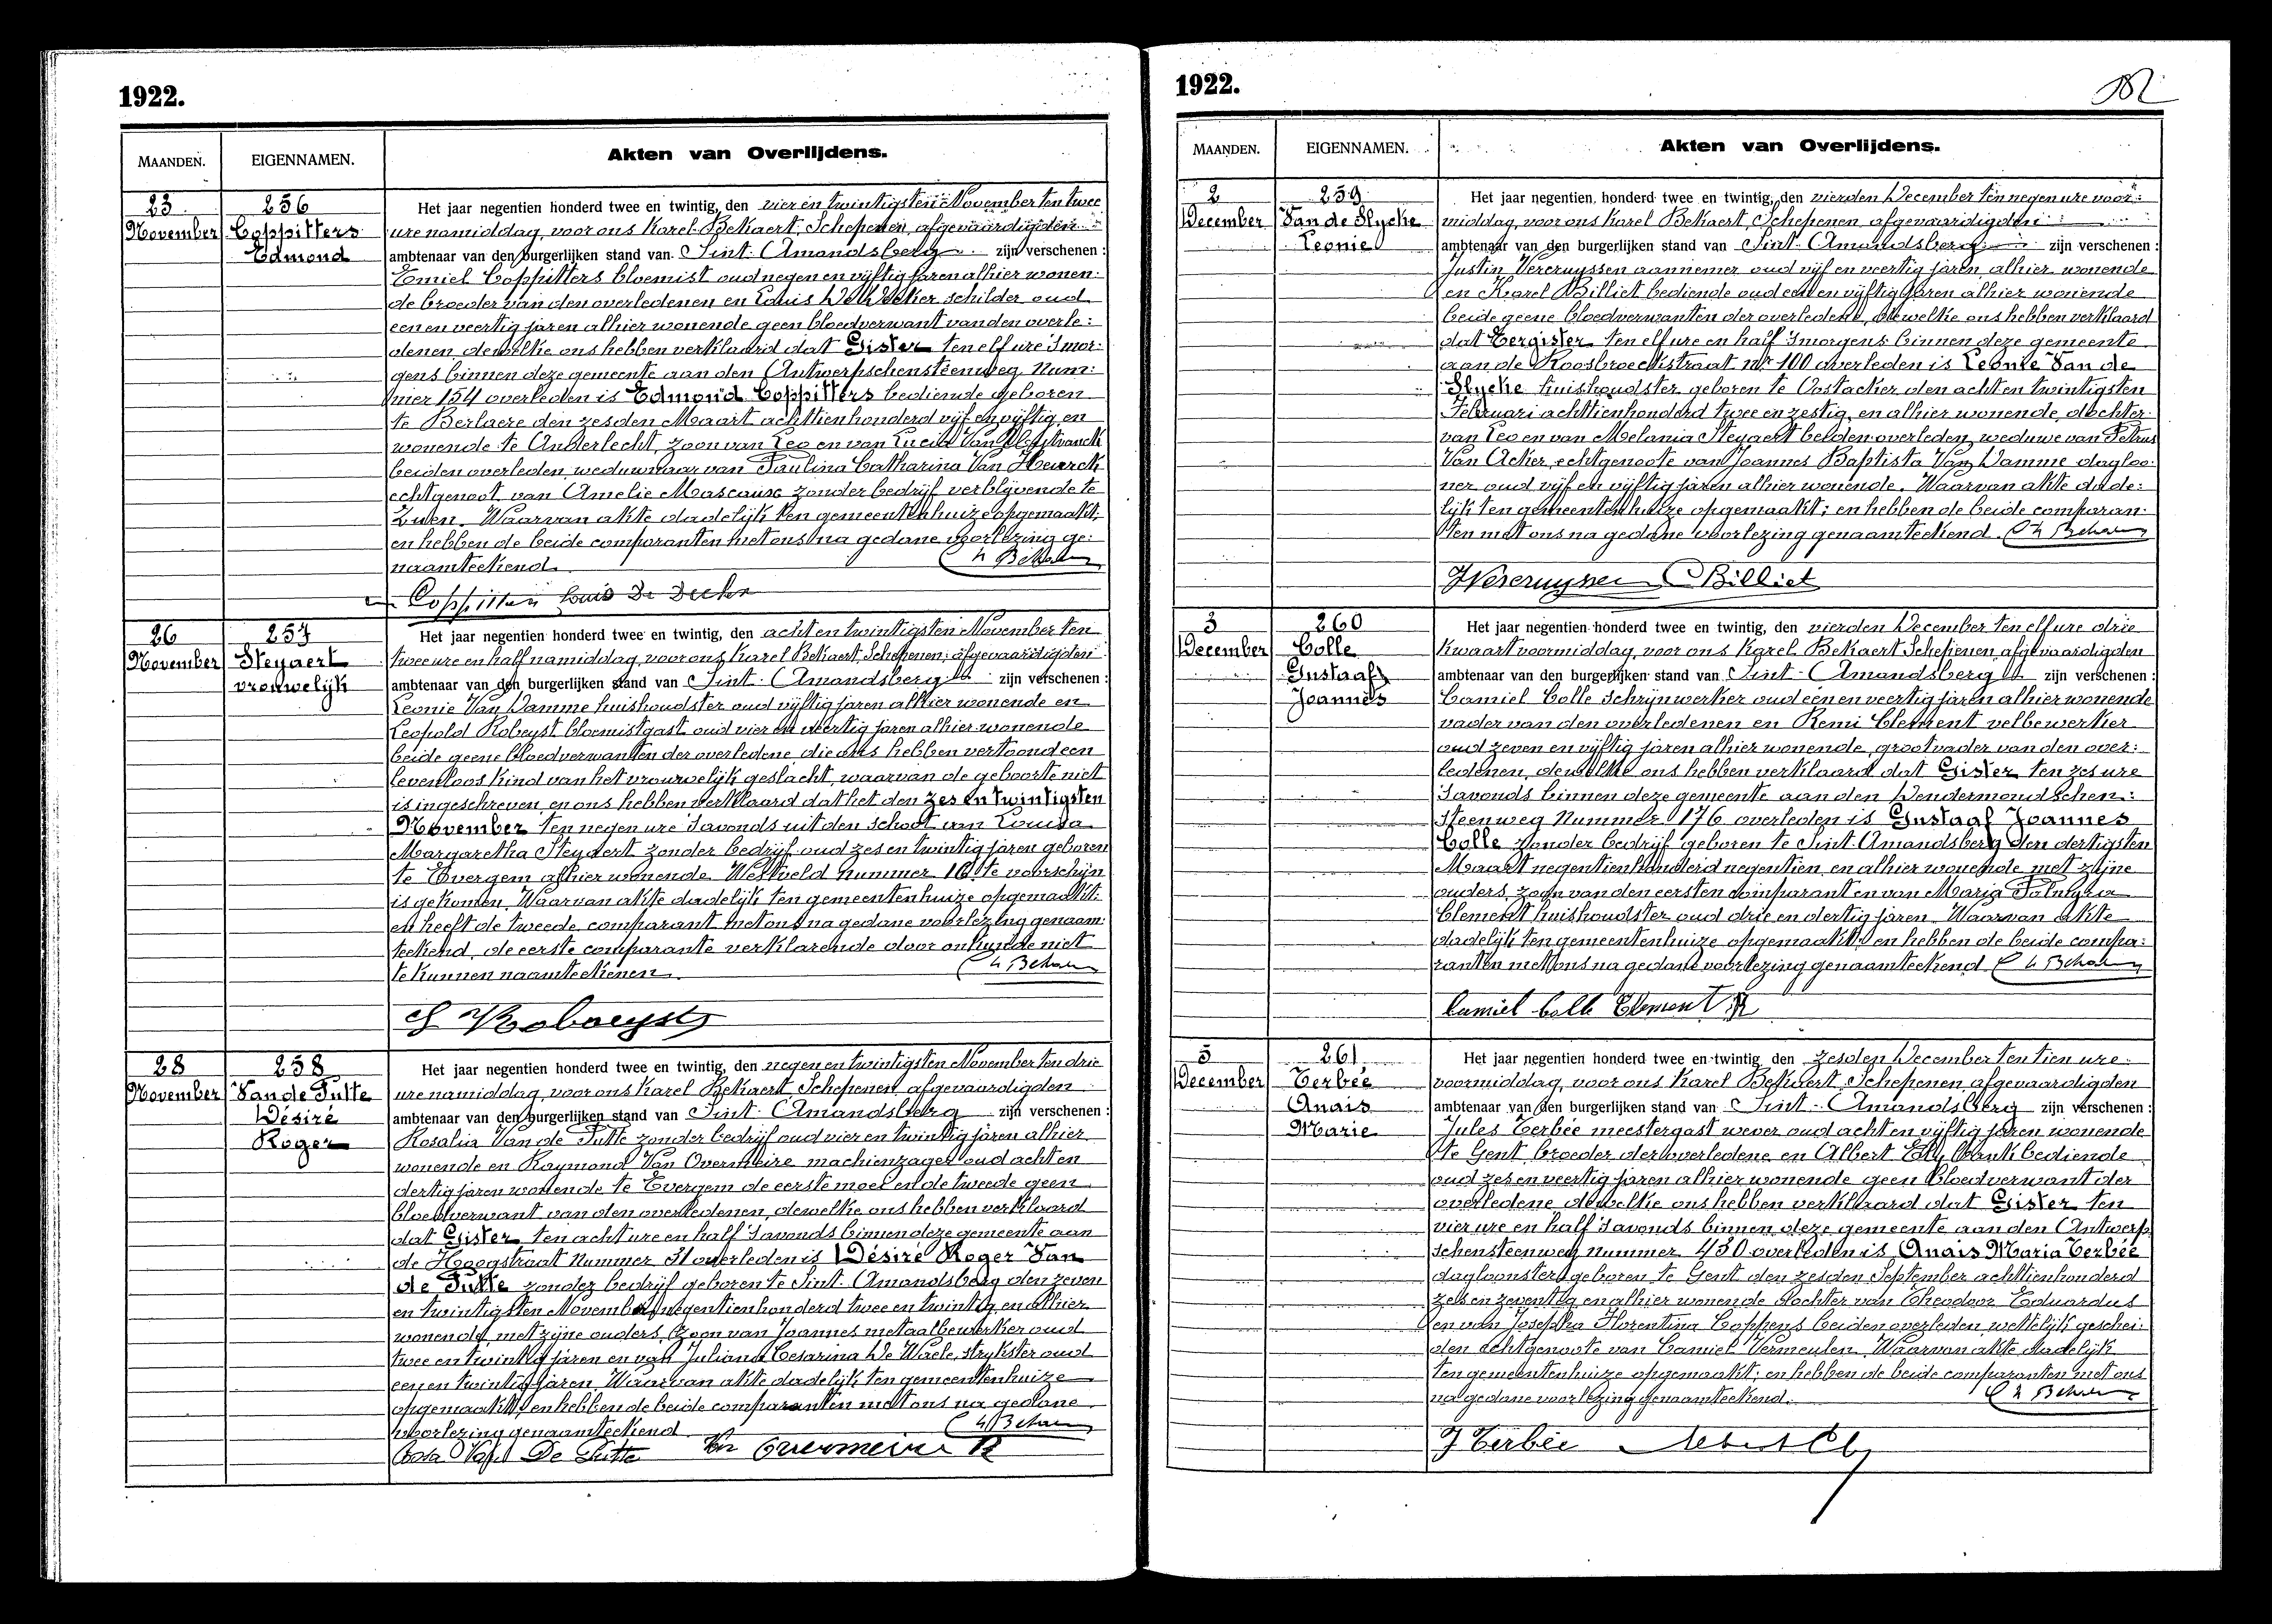 1922.
MAANDEN.
EIGENNAMEN.
Akten van Overlijdens.
23
November
256
Coppitters
Edmond
Het jaar negentien honderd twee en twintig, den vier en twintigsten November ten twee
ure namiddag, voor ons Karel Bekaert, Schepenen, afgevaardigden
ambtenaar van den burgerlijken stand van Sint-Amandsberg zijn verschenen:
Emiel Coppitters bloemist oud negen en vijftig jaren alhier wonen:
de broeder van den overledenen en Louis De Decker schilder oud
een en veertig jaren alhier wonende geen bloedverwant van den overle:
denen, dewelke ons hebben verklaard dat Gister ten elf ure 's mor:
gens binnen deze gemeente aan den Antwerpschensteenweg Num:
mer 154 overleden is Edmond Coppitters bediende geboren
te Berlaere den zesden Maart achttienhonderd vijf en vijftig en
wonende te Anderlecht, zoon van Leo en van Lucia Van
beiden overleden, weduwnaar van Paulina Catharina Van Heurck
echtgenoot van Amelie Mascaux zonder bedrijf verblijvende te
Zuen. Waarvan akte dadelijk ten gemeentenhuize opgemaakt;
en hebben de beide comparanten met ons na gedane voorlezing ge:
naamteekend. Ch Bekaert
Coppitters Louis De Decker
26
November
257
Steyaert
vrouwelijk
Het jaar negentien honderd twee en twintig, den acht en twintigsten November ten
twee ure en half namiddag, voor ons Karel Bekaert, Schepenen, afgevaardigden
ambtenaar van den burgerlijken stand van Sint-Amandsberg zijn verschenen:
Leonie Van Damme huishoudster oud vijftig jaren alhier wonende en
Leopold Robeyst bloemistgast oud vier en veertig jaren alhier wonende
beide geene bloedverwanten der overledene die ons hebben vertoond een
levenloos kind van het vrouwelijk geslacht, waarvan de geboorte niet
is ingeschreven en ons hebben verklaard dat het den zes en twintigsten
November ten negen ure 's avonds uit den schoot van Louisa
Margaretha Steyaert zonder bedrijf oud zes en twintig jaren geboren
te Evergem alhier wonende Westveld nummer 16 te voorschijn
is gekomen. Waarvan akte dadelijk ten gemeentenhuize opgemaakt:
en heeft de tweede comparant met ons na gedane voorlezing genaam:
teekend, de eerste comparante verklarende door onkunde niet
te kunnen naamteekenen. Ch Bekaert
28
November
258
Van de Putte
Désiré
Roger
Het jaar negentien honderd twee en twintig, den negen en twintigsten November ten drie
ure namiddag, voor ons Karel Bekaert, Schepenen, afgevaardigden
ambtenaar van den burgerlijken stand van Sint-Amandsberg zijn verschenen:
Rosalia Van de Putte zonder bedrijf oud vier en twintig jaren alhier
wonende en Raymond Van Overmeire machienzager oud acht en
dertig jaren wonende te Evergem de eerste moei en de tweede geen
bloedverwant van den overledenen, dewelke ons hebben verklaard
dat Gister ten acht ure en half 's avonds binnen deze gemeente aan
de Hoogstraat Nummer 31 overleden is Désiré Roger Van
de Putte zonder bedrijf geboren te Sint-Amandsberg den zeven
en twintigsten November negentienhonderd twee en twintig en alhier
wonende met zijne ouders, zoon van Joannes metaalbewerker oud
twee en twintig jaren en van Juliana Cesarina De Waele, strijkster oud
een en twintig jaren. Waarvan akte dadelijk ten gemeentenhuize
opgemaakt; en hebben de beide comparanten met ons na gedane
voorlezing genaamteekend. Ch Bekaert
Rosa Van De Putte Van Overmeire R
1922.
MAANDEN.
EIGENNAMEN.
Akten van Overlijdens.
2
December
259
Van de Slycke
Leonie
Het jaar negentien honderd twee en twintig, den vierden December ten negen ure voor:
middag, voor ons Karel Bekaert, Schepenen, afgevaardigden
ambtenaar van den burgerlijken stand van Sint-Amandsberg zijn verschenen:
Justin Vercruyssen aannemer oud vijf en veertig jaren, alhier wonende
en Karel Billiet bediende oud een en vijftig jaren alhier wonende
beide geene bloedverwanten der overledene, dewelke ons hebben verklaard
dat Eergister ten elf ure en half 's morgens binnen deze gemeente
aan de Roosbroeckstraat Nr 100 overleden is Leonie Van de
Slycke huishoudster geboren te Oostacker den acht en twintigsten
Februari achttienhonderd twee en zestig, en alhier wonende, dochter
van Leo en van Melania Steyaert beiden overleden, weduwe van Petrus
Van Acker, echtgenoote van Joannes Baptista Van Damme dagloo:
ner oud vijf en vijftig jaren alhier wonende. Waarvan akte dade:
lijk ten gemeentenhuize opgemaakt; en hebben de beide comparan:
ten met ons na gedane voorlezing genaamteekend. Ch Bekaert
J Vercruyssen C Billiet
3
December
260
Colle
Gustaaf
Joannes
Het jaar negentien honderd twee en twintig, den vierden December ten elf ure drie
kwaart voormiddag, voor ons Karel Bekaert Schepenen, afgevaardigden
ambtenaar van den burgerlijken stand van Sint-Amandsberg zijn verschenen:
Camiel Colle schrijnwerker oud een en veertig jaren alhier wonende
vader van den overledenen en Remi Clement velbewerker
oud zeven en vijftig jaren alhier wonende, grootvader van den over:
ledenen, dewelke ons hebben verklaard dat Gister ten zes ure
's avonds binnen deze gemeente aan den Dendermondschen:
steenweg Nummer 176 overleden is Gustaaf Joannes
Colle zonder bedrijf geboren te Sint-Amandsberg den dertigsten
Maart negentienhonderd negentien en alhier wonende met zijne
ouders, zoon van den eersten comparant en van Maria Palmyra
Clement huishoudster oud drie en dertig jaren. Waarvan akte
dadelijk ten gemeentenhuize opgemaakt; en hebben de beide compa:
ranten met ons na gedane voorlezing genaamteekend. Ch Bekaert
Camiel Colle Clement R
5
December
261
Terbée
Anais
Marie
Het jaar negentien honderd twee en twintig, den zesden December ten tien ure
voormiddag, voor ons Karel Bekaert Schepenen afgevaardigden
ambtenaar van den burgerlijken stand van Sint-Amandsberg zijn verschenen:
Jules Terbée meestergast wever oud acht en vijftig jaren wonende
te Gent, broeder der overledene en Albert Ely bankbediende
oud zes en veertig jaren alhier wonende geen bloedverwant der
overledene dewelke ons hebben verklaard dat Gister ten
vier ure en half 's avonds binnen deze gemeente aan den Antwerp:
schensteenweg nummer 430 overleden is Anais Maria Terbée
dagloonster, geboren te Gent den zesden September achttienhonderd
zes en zeventig en alhier wonende dochter van Theodoor Eduardus
en van Josepha Florentina Coppens beiden overleden, wettelijk geschei:
den echtgenoote van Camiel Vermeulen. Waarvan akte dadelijk
ten gemeentenhuize opgemaakt; en hebben de beide comparanten met ons
na gedane voorlezing genaamteekend. Ch Bekaert
J Terbée